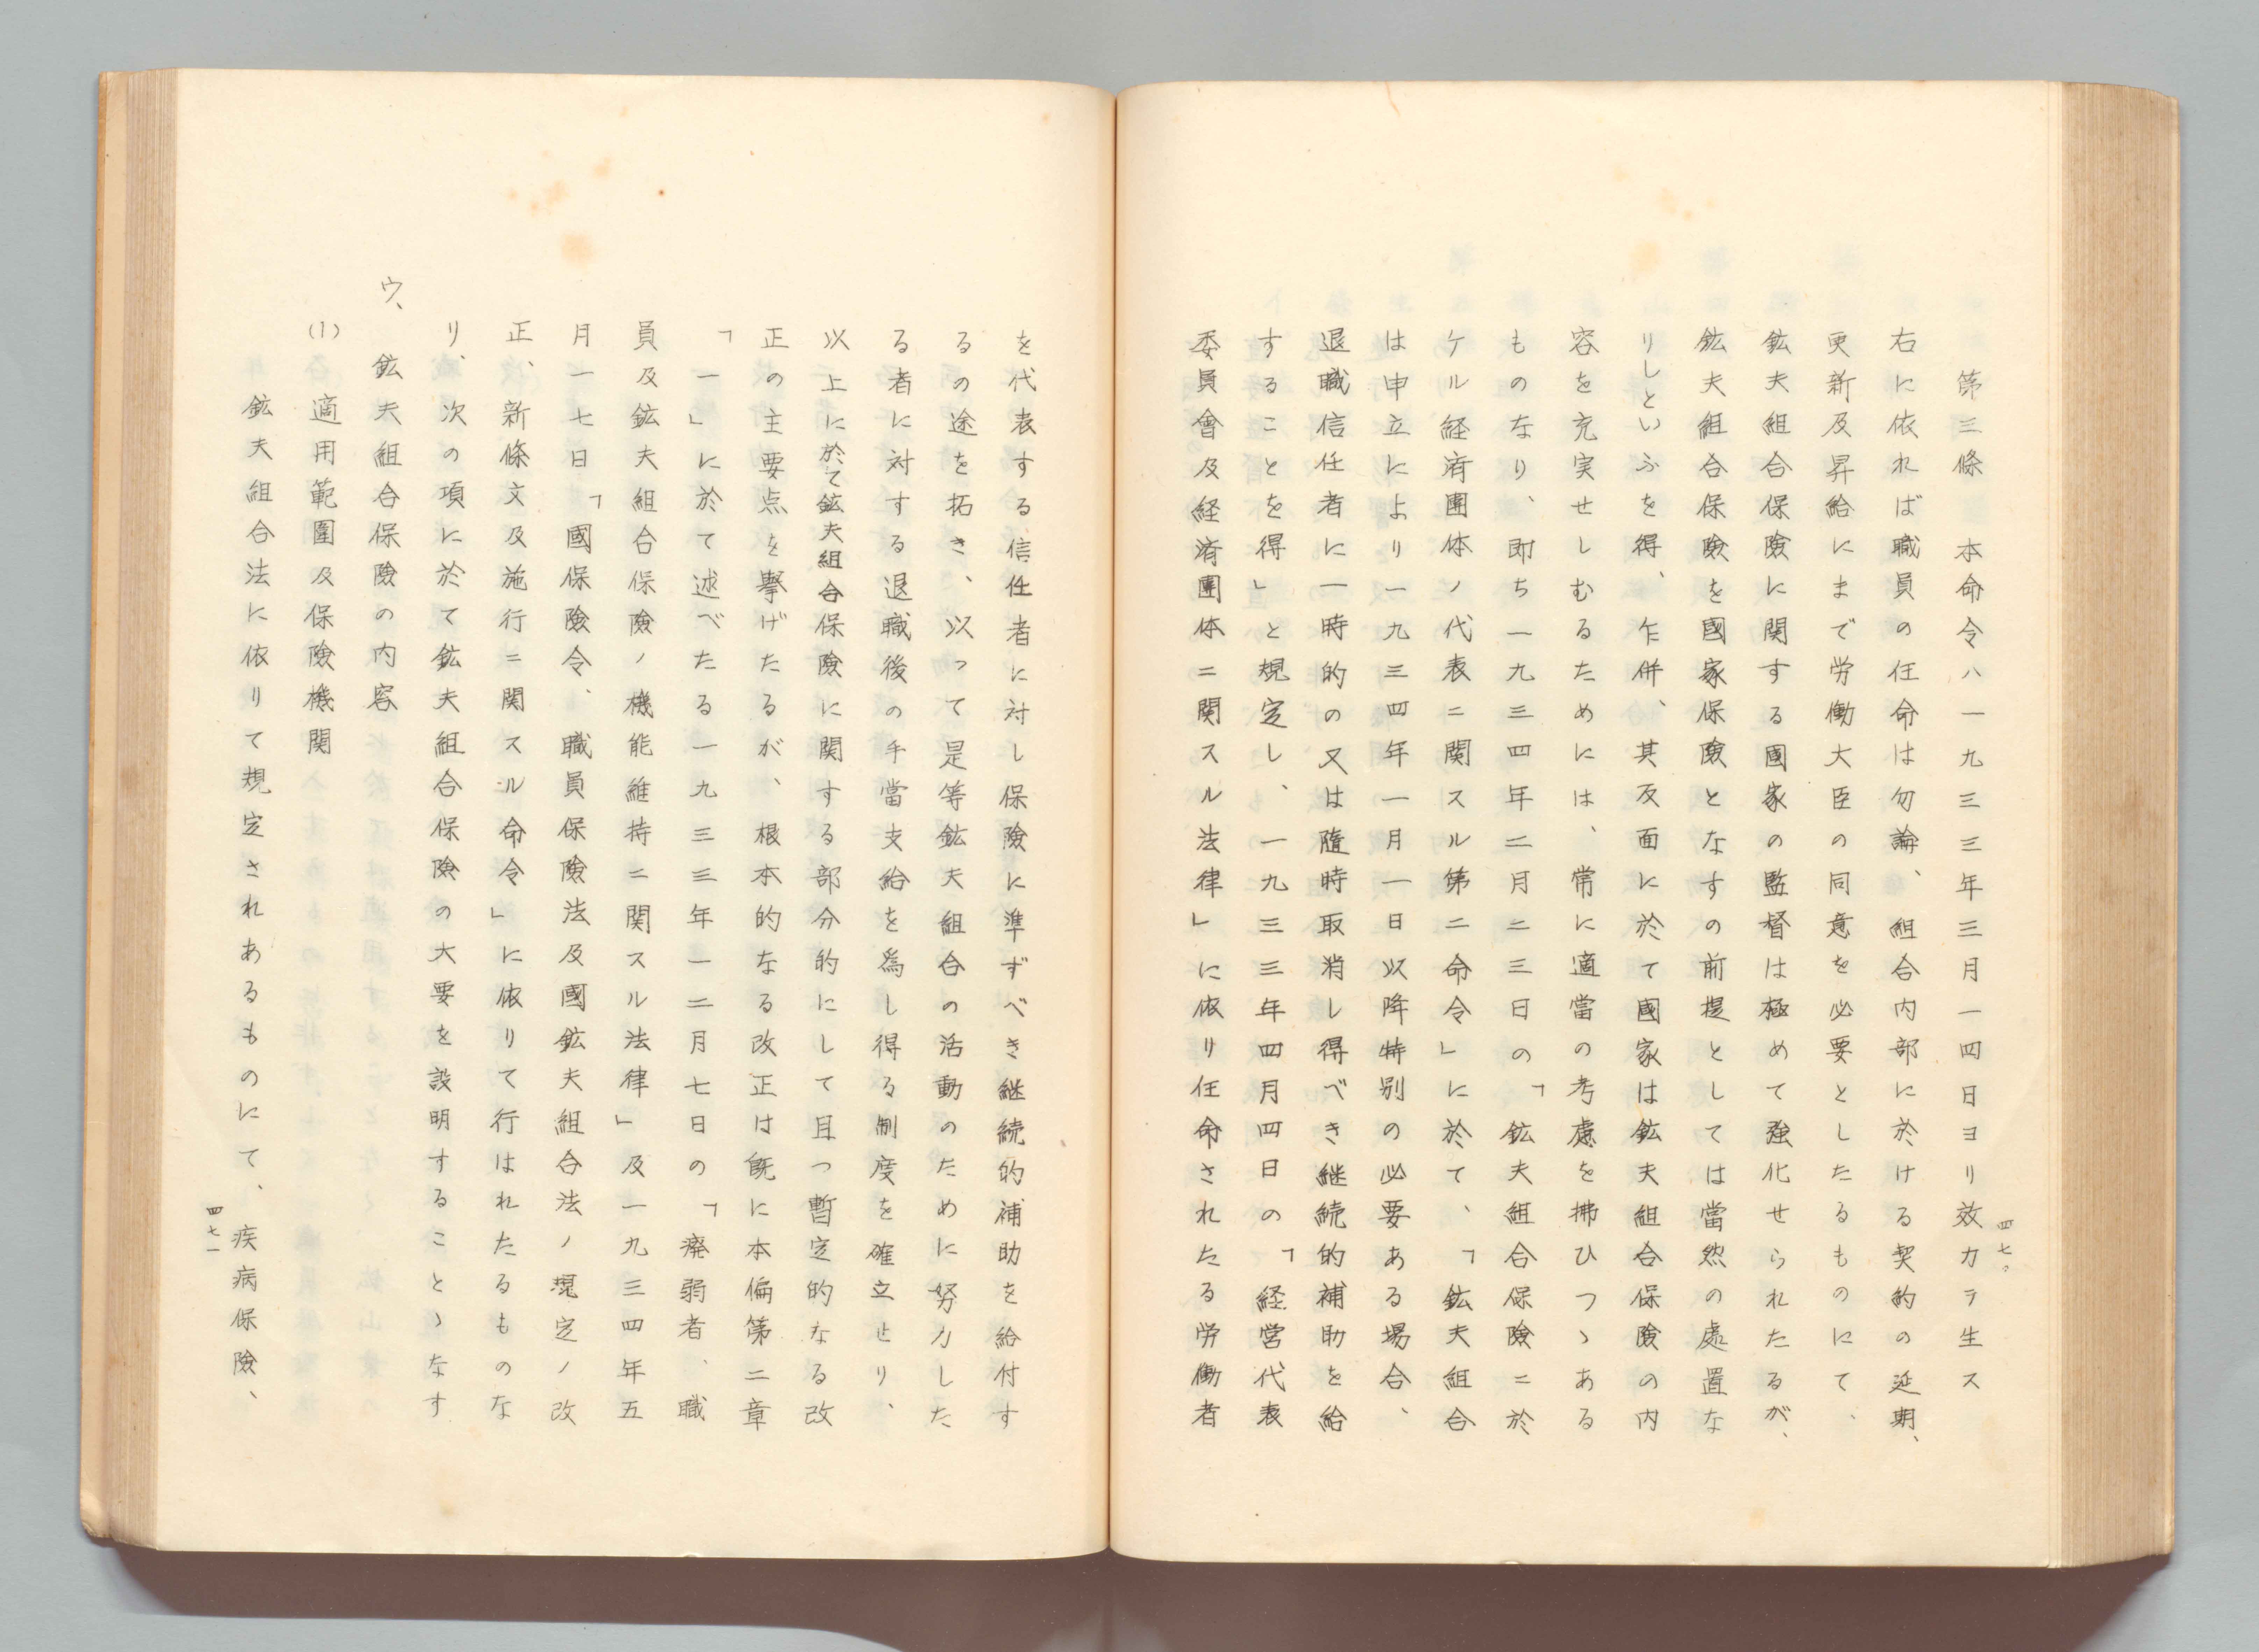 四七〇
第三條　本命令ハ一九三三年三月一四日ヨリ效力ヲ生ス
右に依れば職員の任命は勿論、組合内部に於ける契約の延期、
更新及昇給にまで労働大臣の同意を必要としたるものにて、
鉱夫組合保險に関する國家の監督は極めて強化せられたるが、
鉱夫組合保險を國家保險となすの前提としては當然の處置な
りしといふを得、乍併、其反面に於て國家は鉱夫組合保險の内
容を充実せしむるためには、常に適當の考慮を拂ひつゝある
ものなり、即ち一九三四年二月二三日の「鉱夫組合保險ニ於
ケル経済團体ノ代表ニ関スル第二命令」に於て、「鉱夫組合
は申立により一九三四年一月一日以降特別の必要ある場合、
退職信任者に一時的の又は隨時取消し得べき継続的補助を給
することを得」と規定し、一九三三年四月四日の「経営代表
委員會及経済團体ニ関スル法律」に依リ任命されたる労働者
を代表する信任者に対し保險に準ずべき継続的補助を給付す
るの途を拓き、以って是等鉱夫組合の活動のために努力した
る者に対する退職後の手當支給を爲し得る制度を確立せり、
以上に於て鉱夫組合保險に関する部分的にして且つ暫定的なる改
正の主要点を擧げたるが、根本的なる改正は既に本偏第二章
「一」に於て述べたる一九三三年一二月七日の「廃弱者、職
員及鉱夫組合保險ノ機能維持ニ関スル法律」及一九三四年五
月一七日「國保險令、職員保險法及國鉱夫組合法ノ規定ノ改
正、新條文及施行ニ関スル命令」に依りて行はれたるものな
り、次の項に於て鉱夫組合保險の大要を説明することゝなす
ウ、鉱夫組合保險の内容
(1)適用範圍及保險機関
鉱夫組合法に依りて規定されあるものにて、疾病保險、
四七一